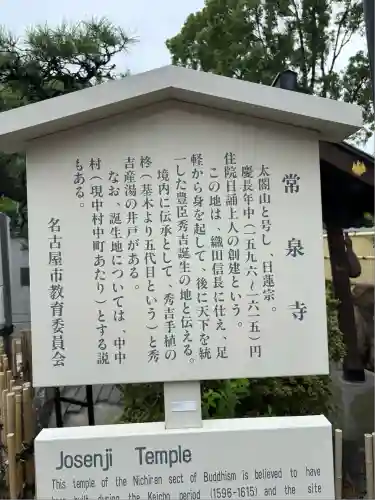 常泉寺
太閤山と号し、日蓮宗。
慶長年中(一五九六~一六一五)円
住院日誦上人の創建という。
この地は、織田信長に仕え、足
軽から身を起して、後に天下を統
一した豊臣秀吉誕生の地と伝える。
境内に伝承として、秀吉手植の
柊(基木より五代目という)と秀
吉産湯の井戸がある。
なお、誕生地については、中中
村(現中村中町あたり)とする説
もある。
名古屋市教育委員会
Josenji Temple
This temple of the Nichiren sect of Buddhism is believed to have
been built during the Keicho period (1596-1615) and the site